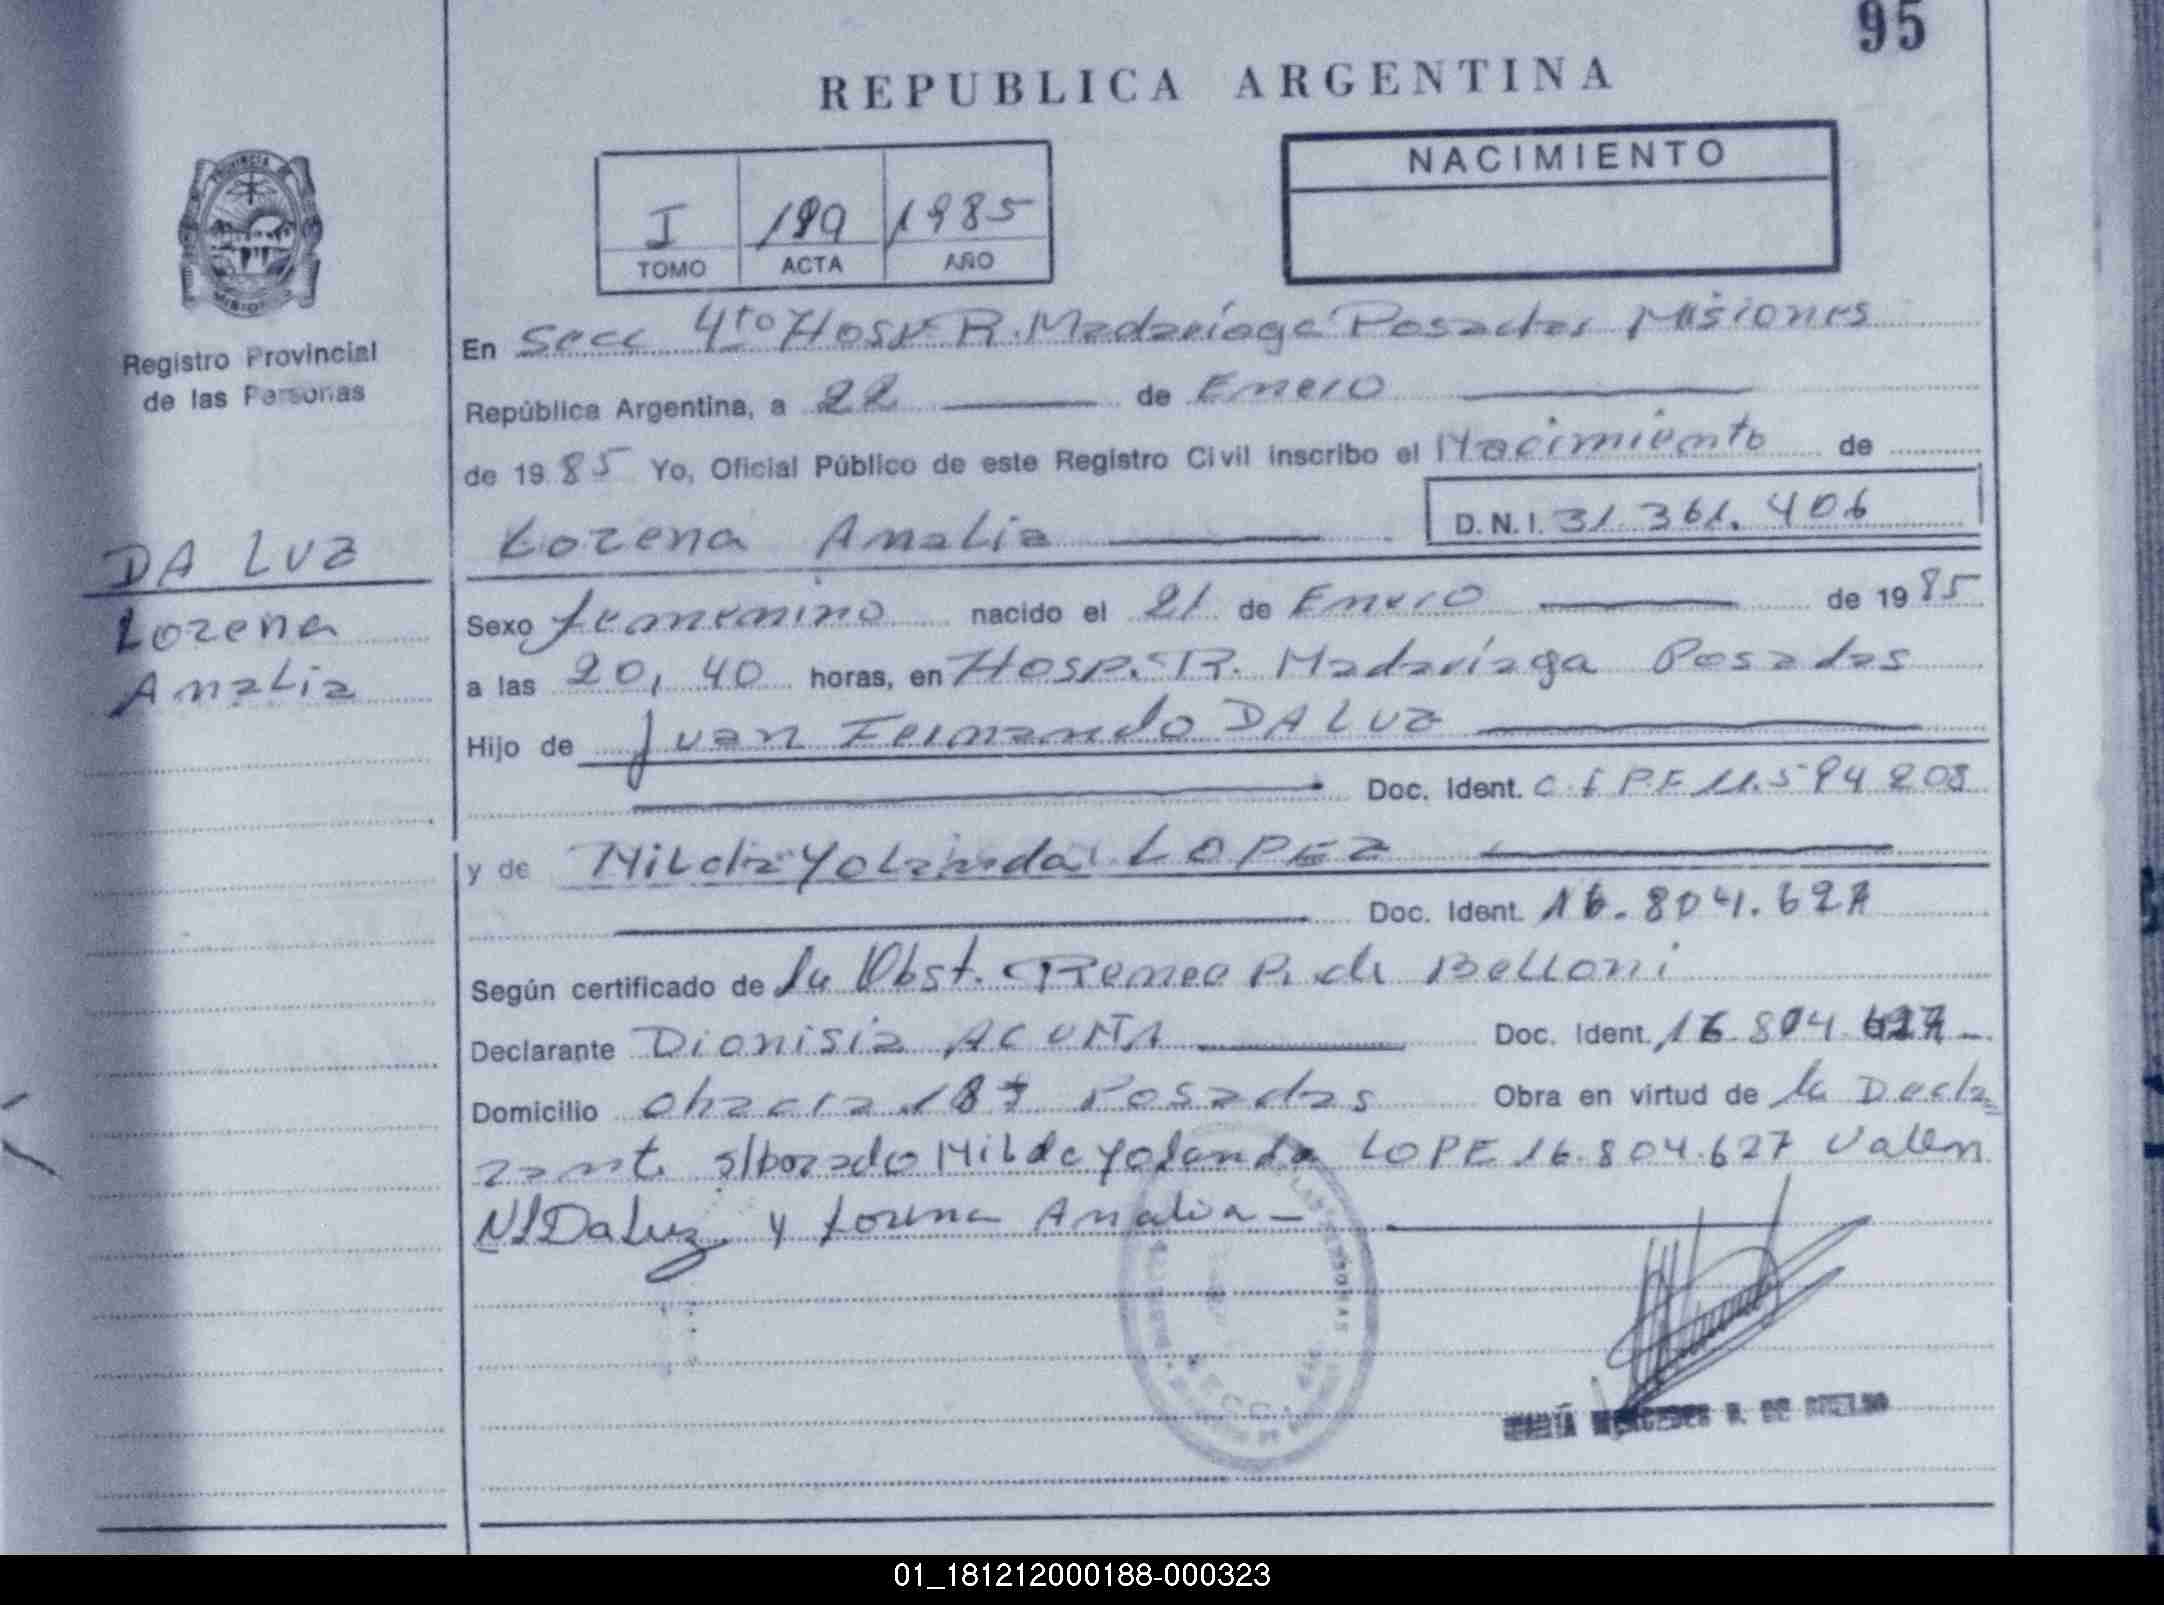 95
REPUBLICA ARGENTINA
PROVINCIA
MISIONES
I 199 1985
TOMO ACTA AÑO
NACIMIENTO
Registro Provincial
de las Personas
En Secc 4to Hosp R. Madariaga Posadas Misiones
República Argentina, a 22 de Enero
de 1985 Yo, Oficial Público de este Registro Civil inscribo el Nacimiento de
Lorena Analia D.N.I. 31.361.406
DA LUZ
Lorena
Analia
Sexo femenino nacido el 21 de Enero de 1985
a las 20,40 horas, en Hosp. R. Madariaga Posadas
Hijo de Juan Fernando DA LUZ
Doc. Ident. C.I P.F 11.594 208
y de Milda Yolanda LOPEZ
Doc. Ident. 16.804.627
Según certificado de la Obst. P. de Belloni
Declarante Dionisia ACUÑA Doc. Ident. 16.804.627
Domicilio Posadas Obra en virtud de la Decla
rante s/borado Milda Yolanda LOPE 16.804.627 Valen
Da Luz y Lorena Analia
LAS PERSONAS
SECC.
MARÍA MERCEDES R. DE
01_181212000188-000323